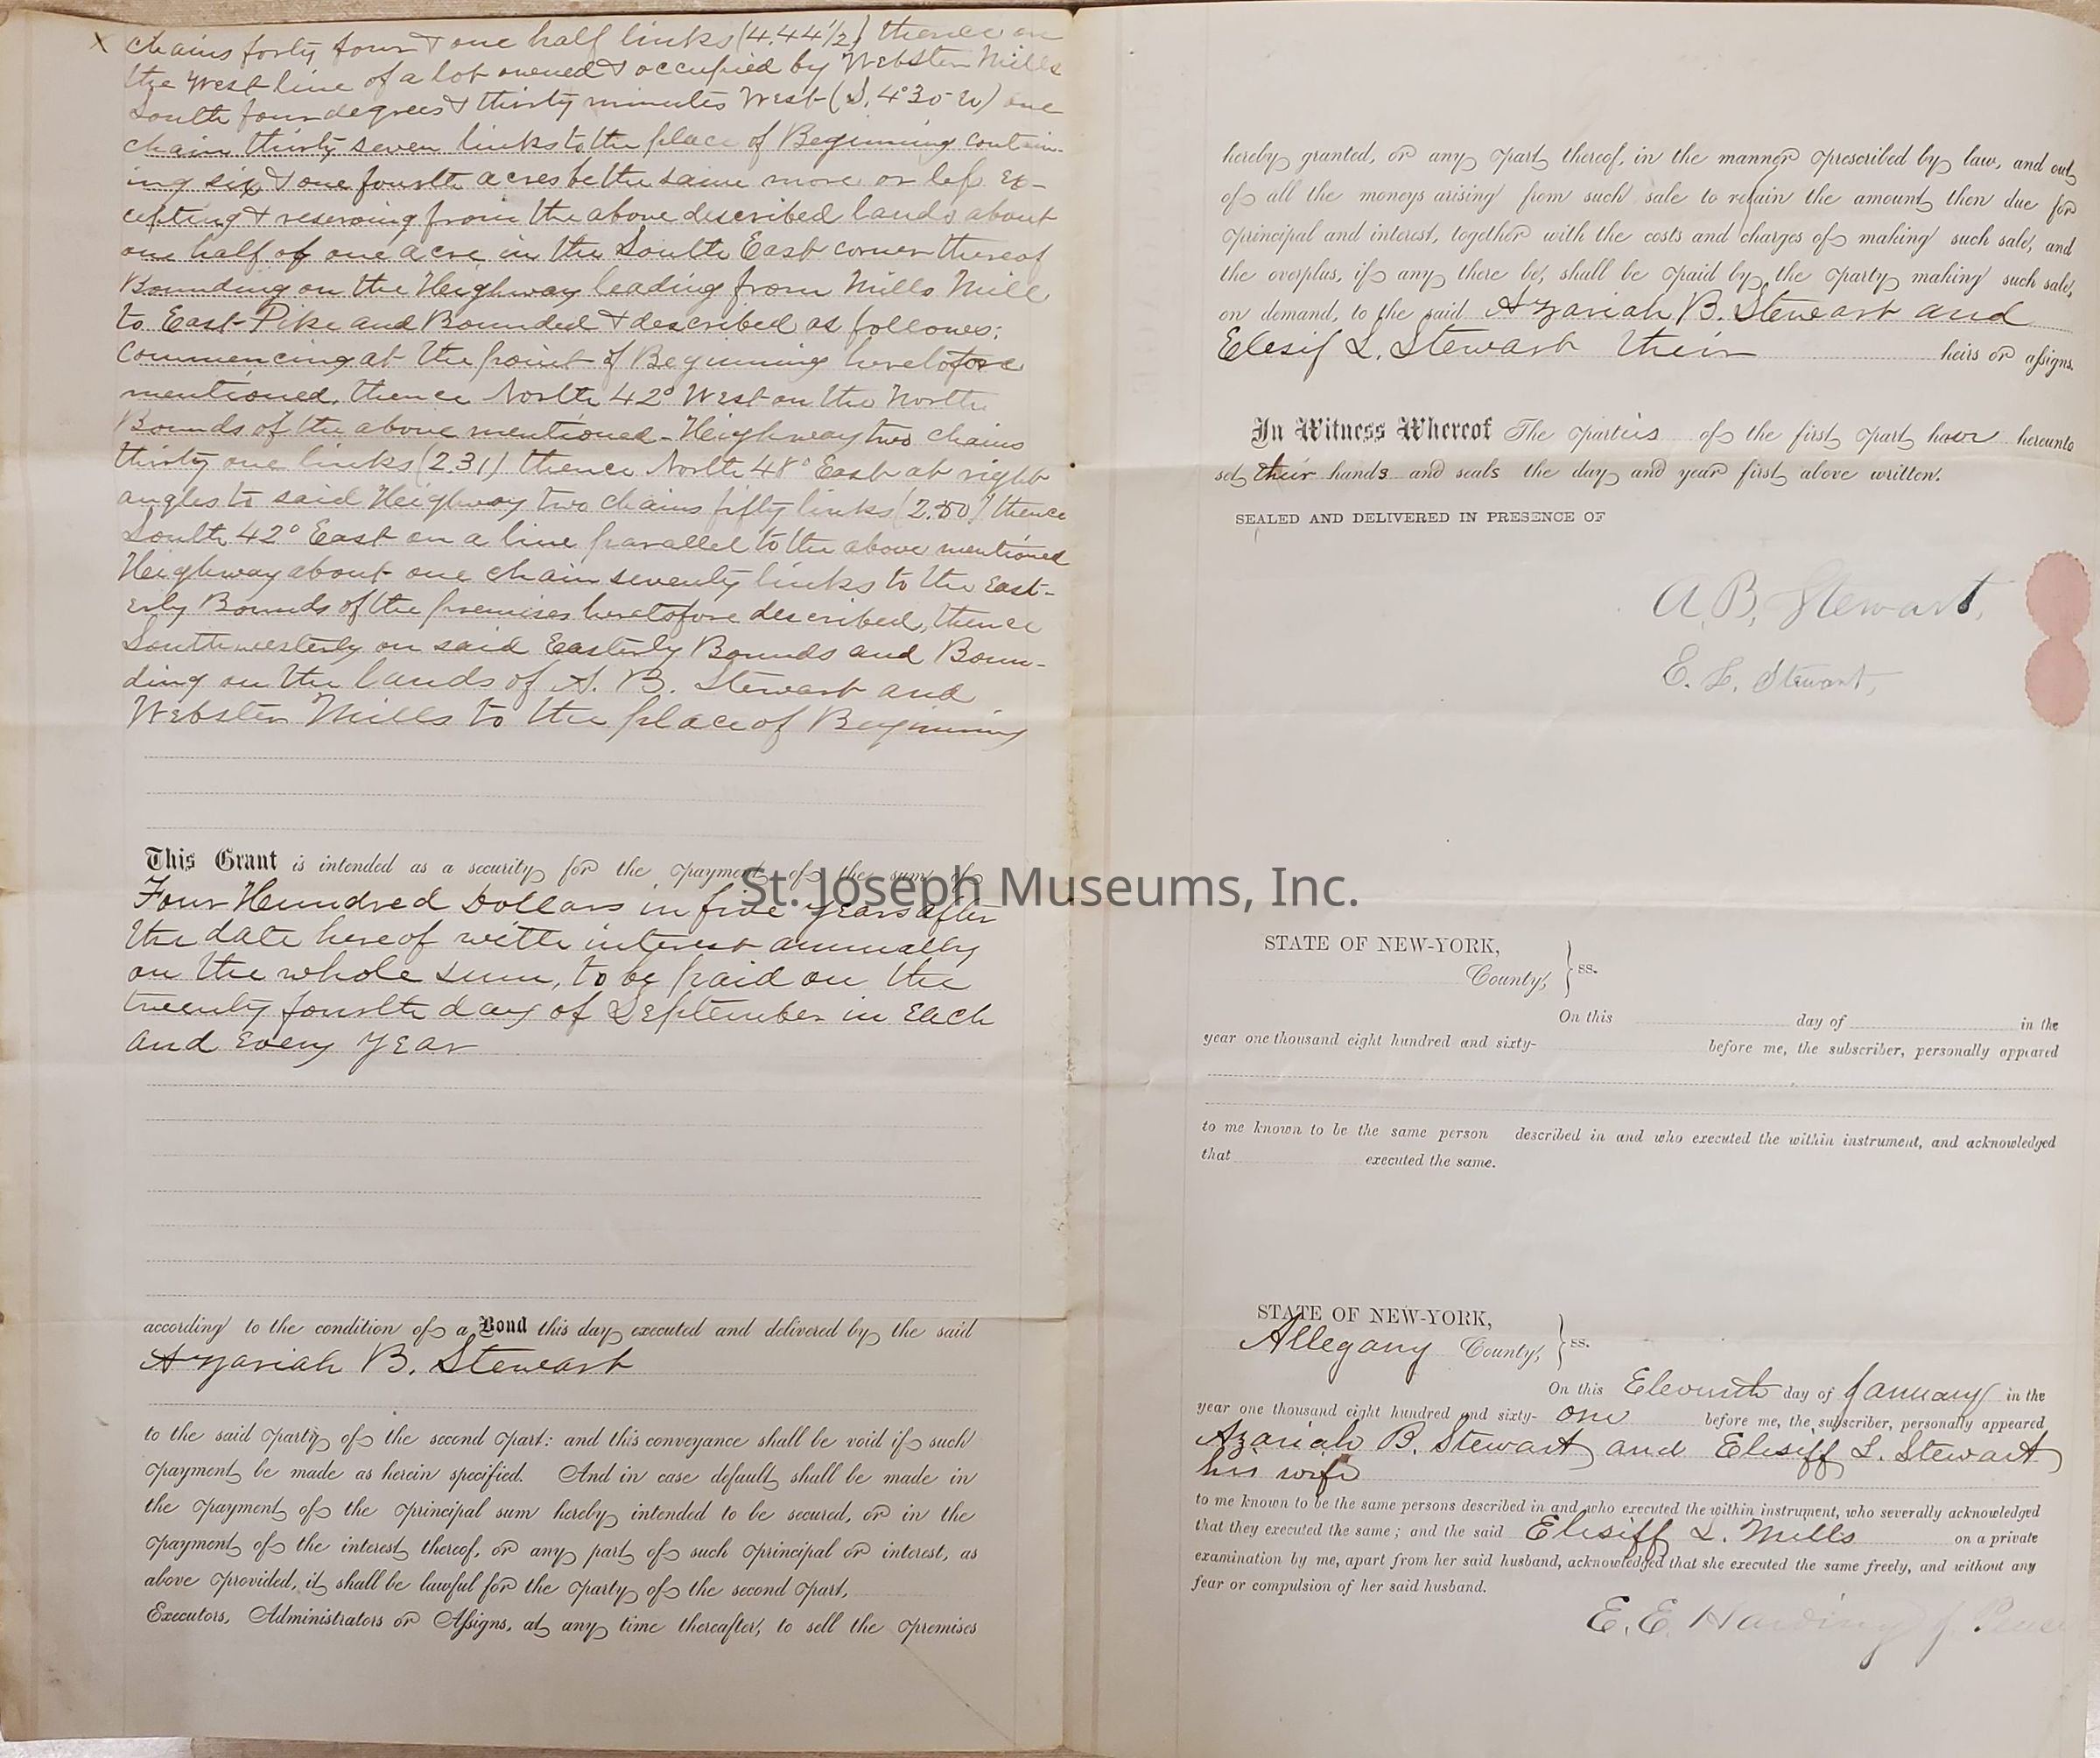 X chains forty four & one half links (4.44½) thence on
the West line of a lot owned & occupied by Webster Mills
South four degrees & thirty minutes West (S. 4°30 W) one
chain thirty seven links to the place of Beginning contain-
ing six & one fourth acres be the same more or less Ex-
cepting & reserving from the above described lands about
one half of one acre in the South East corner thereof
Bounding on the Heighway leading from Mills Mill
to East-Pike and Bounded & described as follows:
Commencing at the point of Beginning heretofore
mentioned, thence North 42° West on the North
Bounds of the above mentioned Heighway two chains
thirty one links (2.31) thence North 48° East at right
angles to said Heighway two chains fifty links (2.50) thence
South 42° East on a line parallel to the above mentioned
Heighway about one chain seventy links to the East-
erly Bounds of the premises heretofore described, thence
Southwesterly on said Easterly Bounds and Boun-
ding on the lands of A. B. Stewart and
Webster Mills to the place of Beginning
This Grant is intended as a security for the payment of the sum of
Four Hundred Dollars in five years after
the date hereof with interest annually
on the whole sum, to be paid on the
twenty fourth day of September in Each
and Every Year
according to the condition of a Bond this day executed and delivered by the said
Azariah B. Stewart
to the said party of the second part: and this conveyance shall be void if such
payment be made as herein specified. And in case default shall be made in
the payment of the principal sum hereby intended to be secured, or in the
payment of the interest thereof, or any part of such principal or interest, as
above provided, it shall be lawful for the party of the second part,
Executors, Administrators or Assigns, at any time thereafter, to sell the premises
hereby granted, or any part thereof, in the manner prescribed by law, and out
of all the moneys arising from such sale to retain the amount then due for
principal and interest, together with the costs and charges of making such sale, and
the overplus, if any there be, shall be paid by the party making such sale,
on demand, to the said Azariah B. Stewart and
Elesif L. Stewart their heirs or assigns.
In Witness Whereof The parties of the first part have hereunto
set their hands and seals the day and year first above written.
SEALED AND DELIVERED IN PRESENCE OF
A. B. Stewart,
E. L. Stewart,
St. Joseph Museums, Inc.
STATE OF NEW-YORK,
County, } ss.
On this day of in the
year one thousand eight hundred and sixty- before me, the subscriber, personally appeared
to me known to be the same person described in and who executed the within instrument, and acknowledged
that executed the same.
STATE OF NEW-YORK,
Allegany County, } ss.
On this Eleventh day of January in the
year one thousand eight hundred and sixty- one before me, the subscriber, personally appeared
Azariah B. Stewart and Elesiff L. Stewart
his wife
to me known to be the same persons described in and who executed the within instrument, who severally acknowledged
that they executed the same; and the said Elesiff L. Mills on a private
examination by me, apart from her said husband, acknowledged that she executed the same freely, and without any
fear or compulsion of her said husband.
E. E. Harding J. Peace